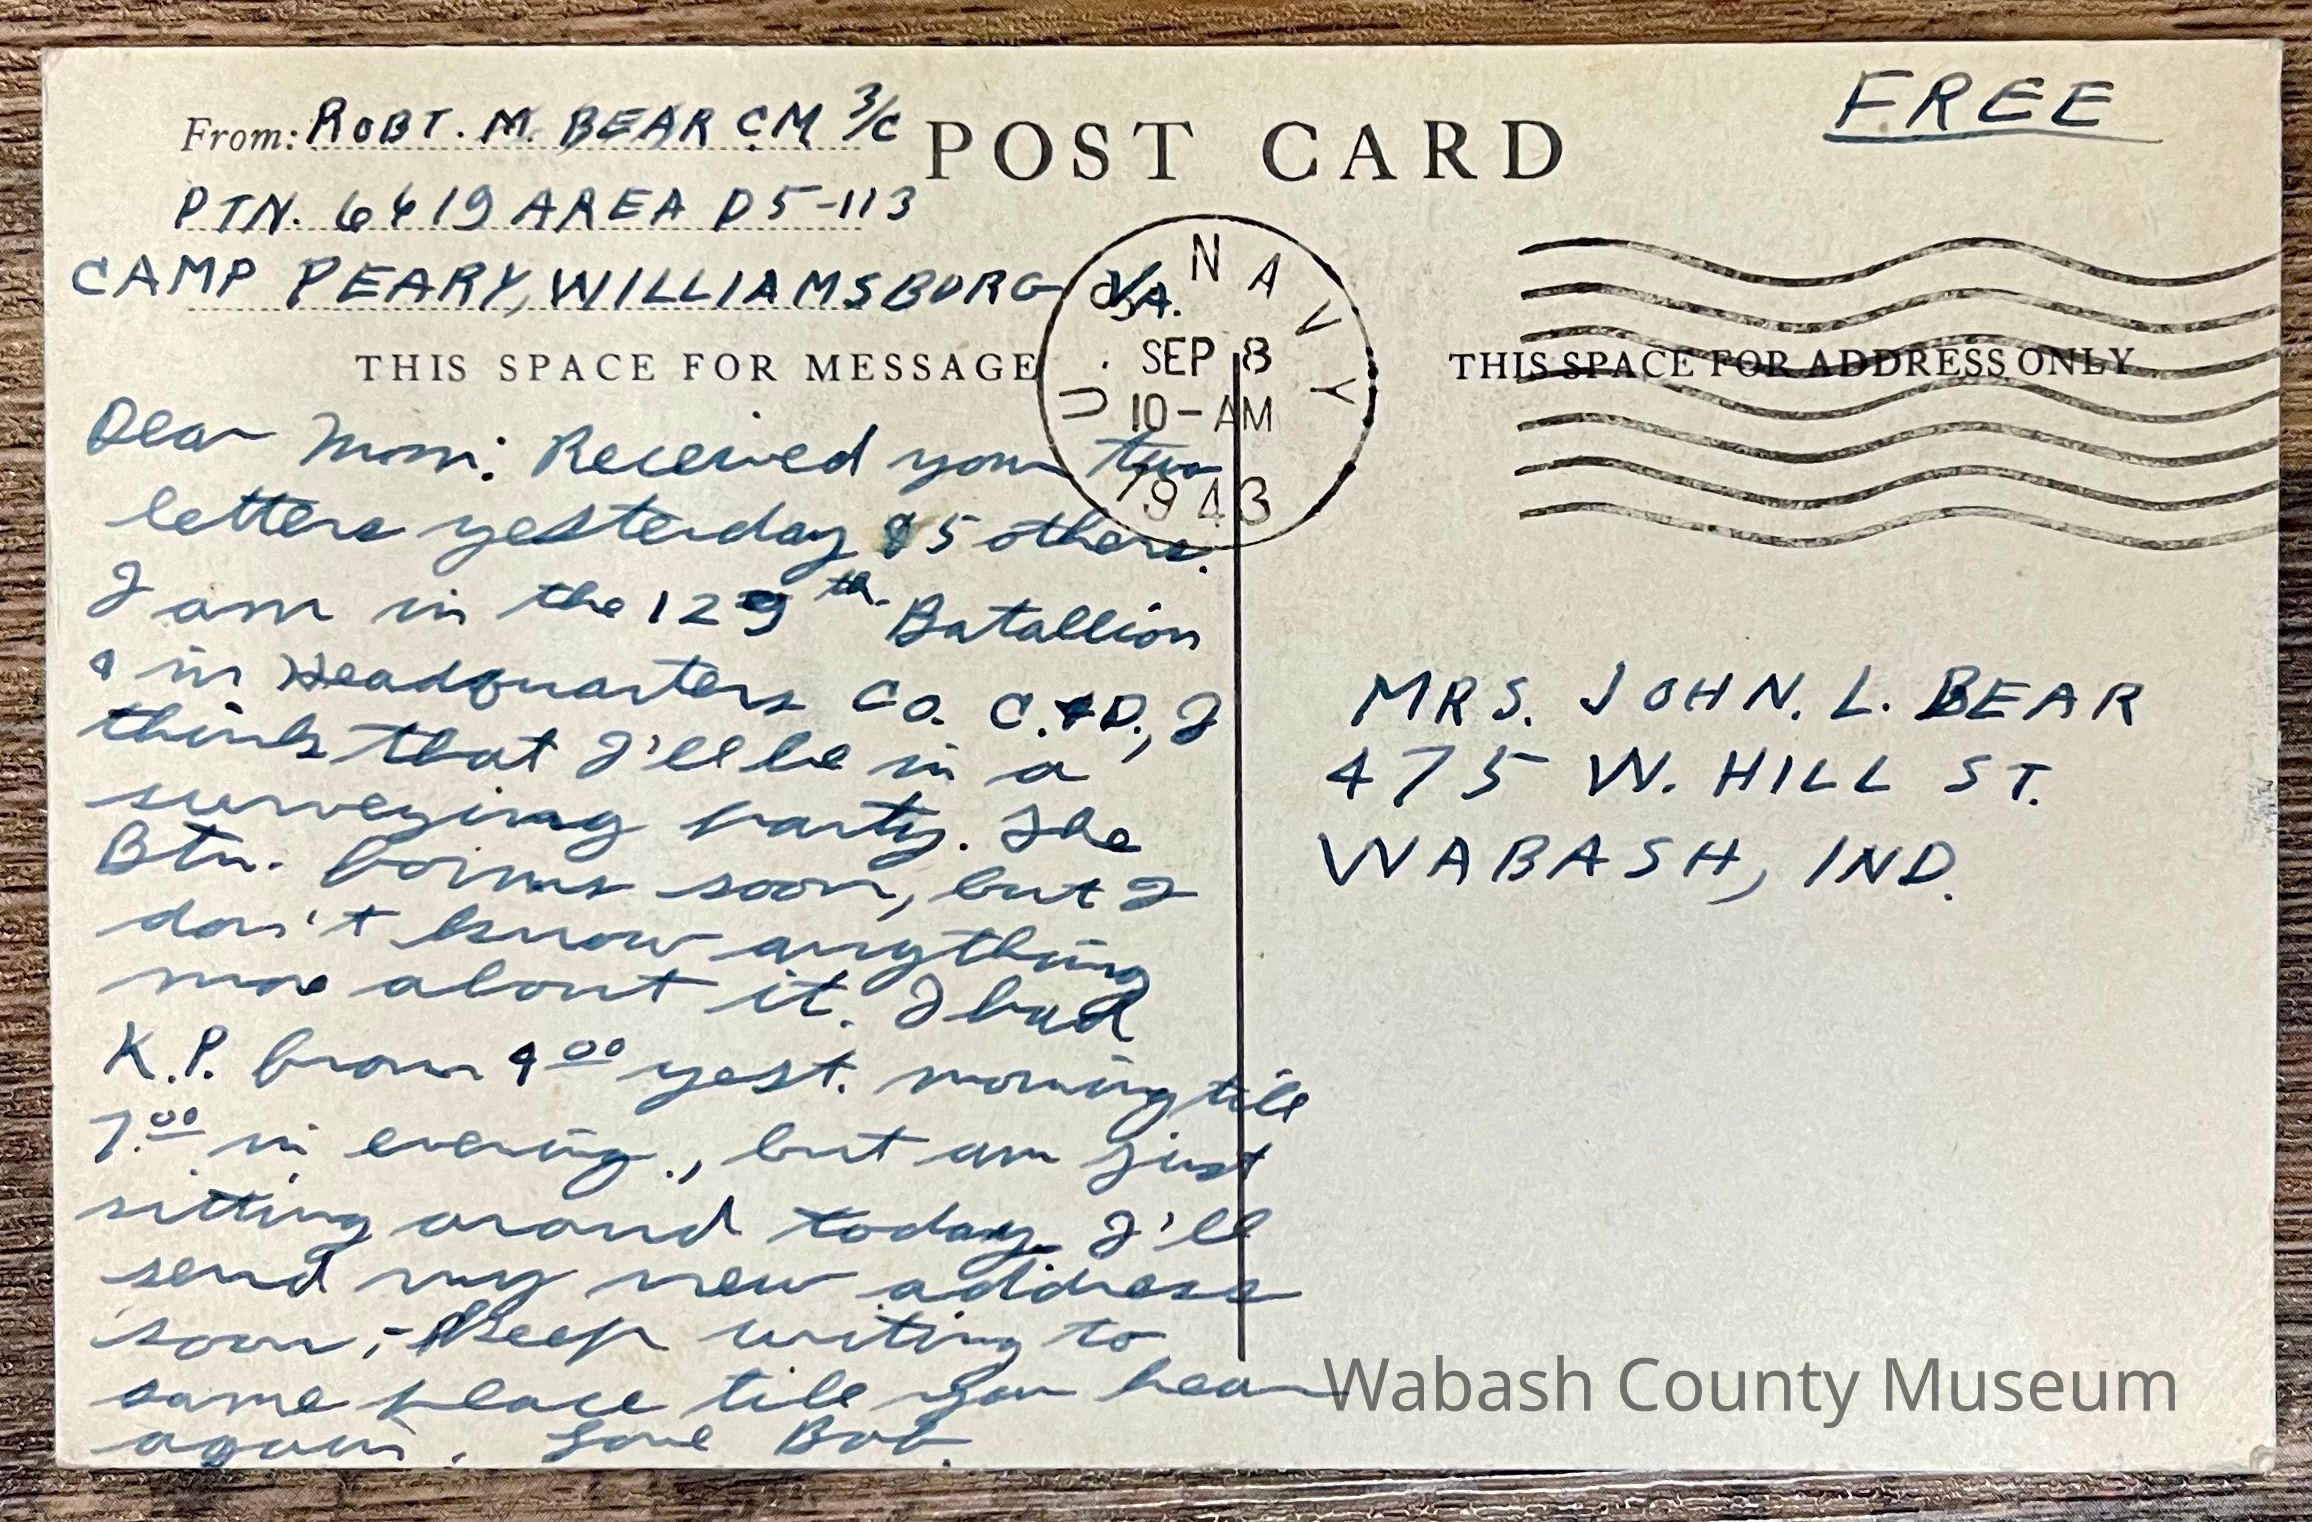 From: ROBT. M. BEAR CM 3/C
PTN. 6419 AREA D5-113
CAMP PEARY, WILLIAMSBURG VA.
POST CARD
FREE
U.S. NAVY
SEP 8
10-AM
1943
THIS SPACE FOR MESSAGE
THIS SPACE FOR ADDRESS ONLY
Dear Mom: Received your two
letters yesterday & 5 others.
I am in the 129th. Batallion
& in Headquarters Co. C.&D., I
think that I'll be in a
surveying party. The
Btn. forms soon, but I
don't know anything
more about it. I had
K.P. from 9 00 yest. morning till
7.00 in evening., but am just
sitting around today. I'll
send my new address
soon,- Keep writing to
same place till you hear
again. Love Bob.
MRS. JOHN. L. BEAR
475 W. HILL ST.
WABASH, IND.
Wabash County Museum